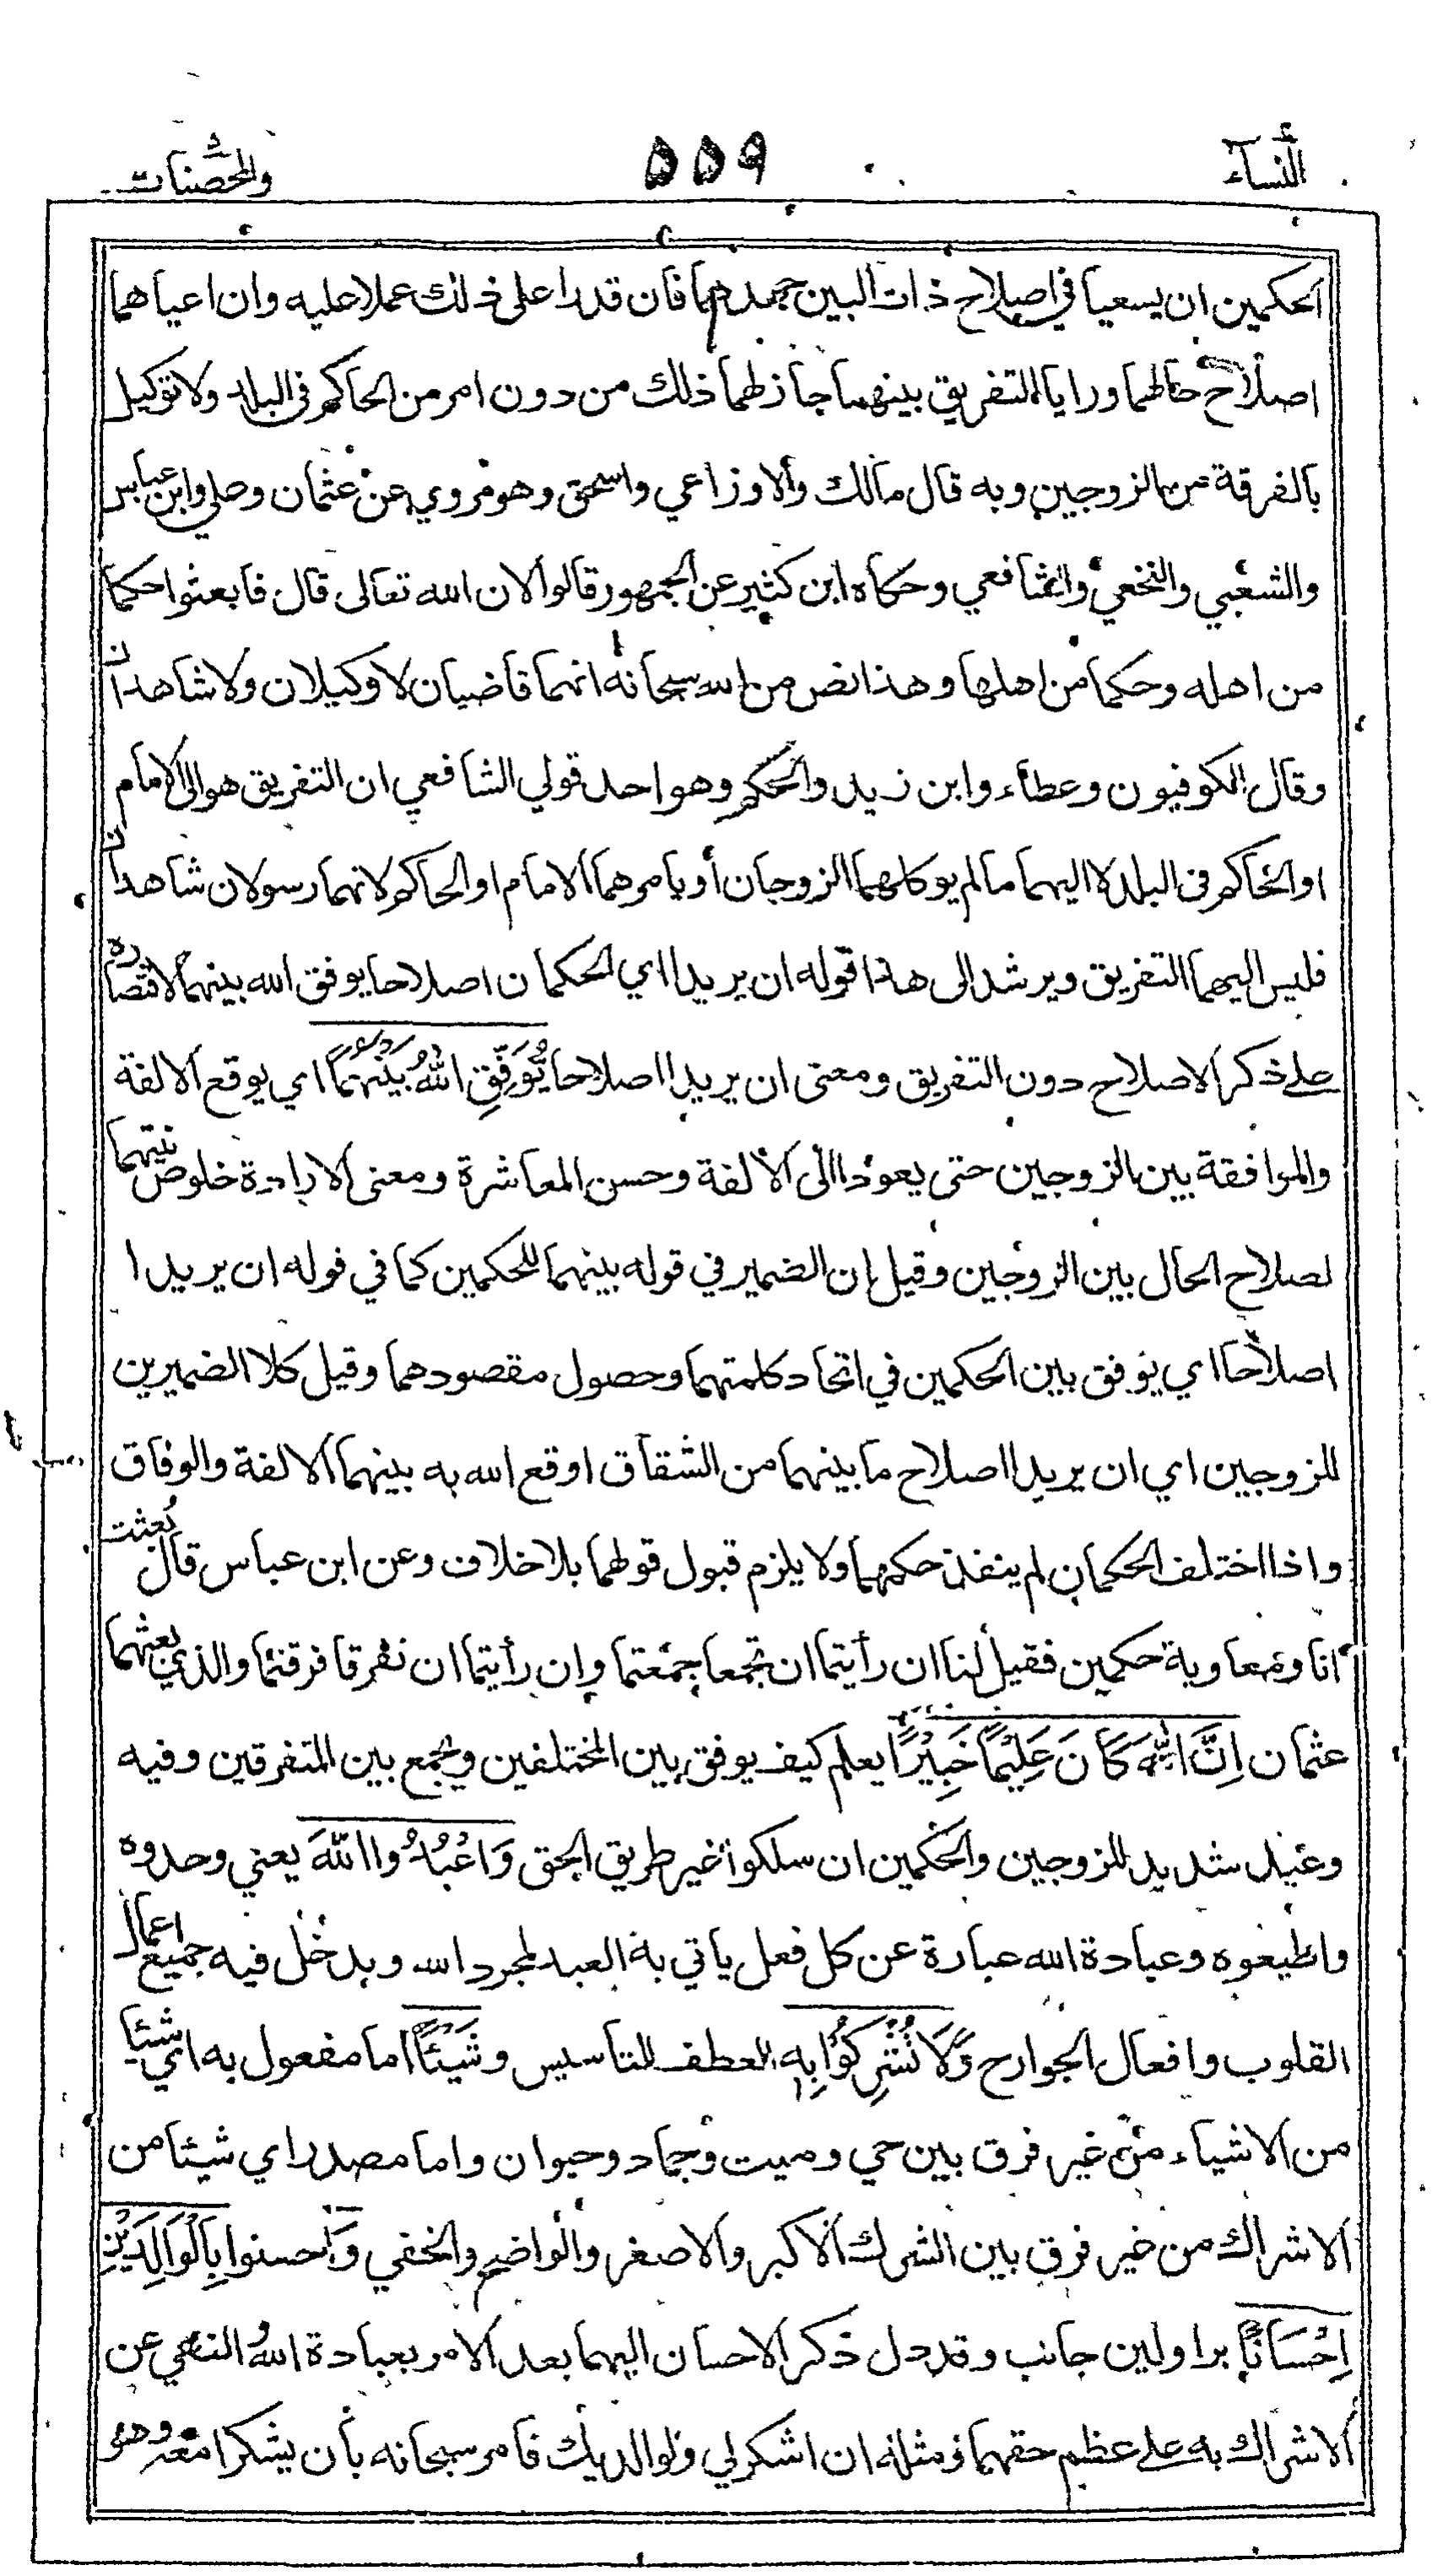 النسآء ٥٥٩ والمحصنات
الحكمين ان يسعيا في اصلاح ذات البين جهدهما فان قدرا على ذلك عملا عليه وان اعياهما
اصلاح حالهما ورايا التفريق بينهما جاز لهما ذلك من دون امر من الحاكم في البلد ولا توكيل
بالفرقة من الزوجين وبه قال مالك والاوزاعي واسحق وهو مروي عن عثمان وعلي وابن عباس
والشعبي والنخعي والشافعي وحكاه ابن كثير عن الجمهور قالوا لان الله تعالى قال فابعثوا حكما
من اهله وحكما من اهلها وهذا نص من الله سبحانه انهما قاضيان لا وكيلان ولا شاهدان
وقال الكوفيون وعطاء وابن زيد والحكم وهو احد قولي الشافعي ان التفريق هو الى الامام
او الحاكم في البلد لا اليهما ما لم يوكلهما الزوجان أو يامرهما الامام او الحاكم لانهما رسولان شاهدان
فليس اليهما التفريق ويرشد الى هذا قوله ان يريدا اي الحكمان اصلاحا يوفق الله بينهما لاقتصاره
على ذكر الاصلاح دون التفريق ومعنى ان يريدا اصلاحا يُّوَفِّقِ اللهُ بَيْنَهُمَا اي يوقع الالفة
والموافقة بين الزوجين حتى يعودا الى الالفة وحسن المعاشرة ومعنى الارادة خلوص نيتهما
لصلاح الحال بين الزوجين وقيل ان الضمير في قوله بينهما للحكمين كما في قوله ان يريدا
اصلاحا اي يوفق بين الحكمين في اتحاد كلمتهما وحصول مقصودهما وقيل كلا الضميرين
للزوجين اي ان يريدا اصلاح ما بينهما من الشقاق اوقع الله به بينهما الالفة والوفاق
واذا اختلف الحكمان لم ينفذ حكمهما ولا يلزم قبول قولهما بلا خلاف وعن ابن عباس قال بُعثت
انا ومعاوية حكمين فقيل لنا ان رأيتما ان تجمعا جمعتما وان رأيتما ان تفرقا فرقتما والذي بعثهما
عثمان اِنَّ اللهَ كَانَ عَلِيْمًا خَبِيْرًا يعلم كيف يوفق بين المختلفين ويجمع بين المتفرقين وفيه
وعيد شديد للزوجين والحكمين ان سلكوا غير طريق الحق وَاعْبُدُوا اللهَ يعني وحدوه
واطيعوه وعبادة الله عبارة عن كل فعل ياتي به العبد لمجرد الله ويدخل فيه جميع اعمال
القلوب وافعال الجوارح وَلَا تُشْرِكُوْا بِهٖ العطف للتاسيس وشَيْئًا اما مفعول به اي شيئا
من الاشياء من غير فرق بين حي وميت وجماد وحيوان واما مصدر اي شيئا من
الاشراك من غير فرق بين الشرك الاكبر والاصغر والواضح والخفي وَ احسنوا بِالْوَالِدَيْنِ
اِحْسَانًا برا ولين جانب وقد دل ذكر الاحسان اليهما بعد الامر بعبادة الله والنهي عن
الاشراك به على عظم حقهما ومثله ان اشكر لي ولوالديك فامر سبحانه بأن يشكرا معه وهو